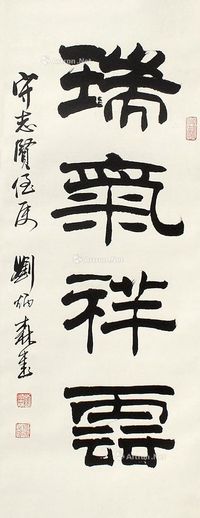 瑞氣祥雲
守志賢侄屬
劉炳森書